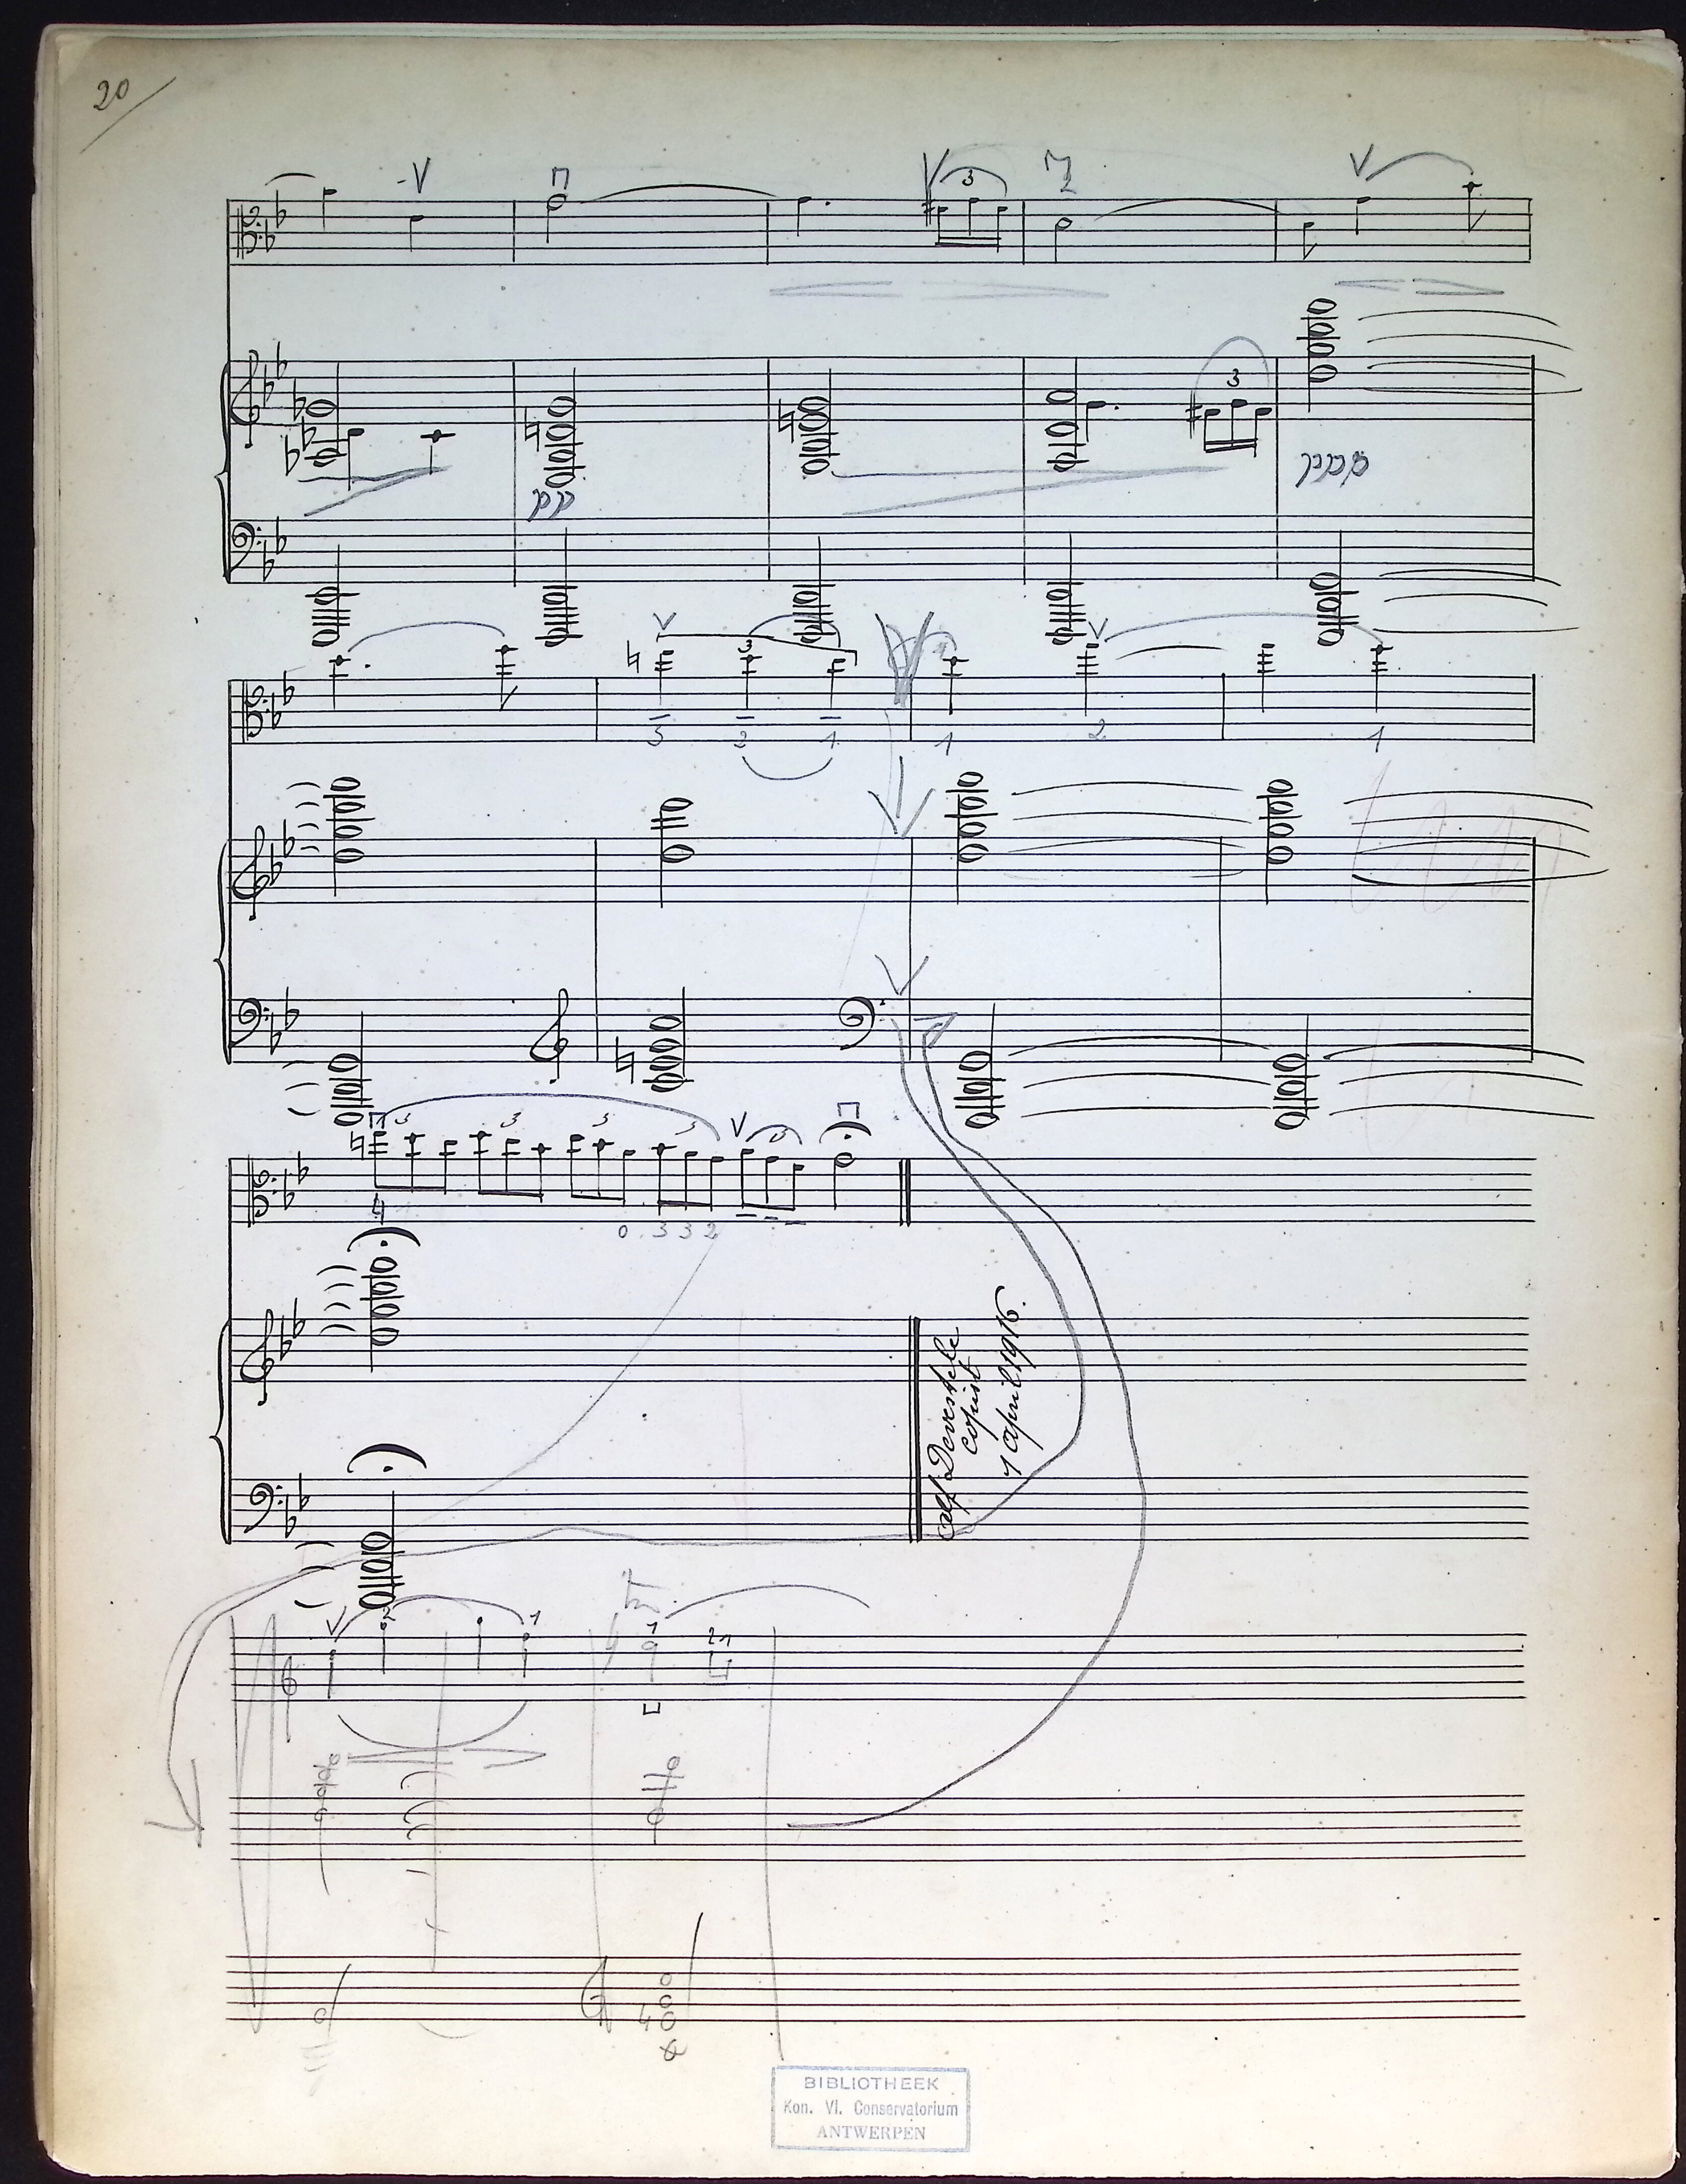 20
3
3
2
pp
3
pppp
3
3 2 1 1 2 1
3 3 3 3 3
4
0 3 3 2
Alf Devestele
copist
7 april 1916.
2 1
1
4
BIBLIOTHEEK
Kon. Vl. Conservatorium
ANTWERPEN